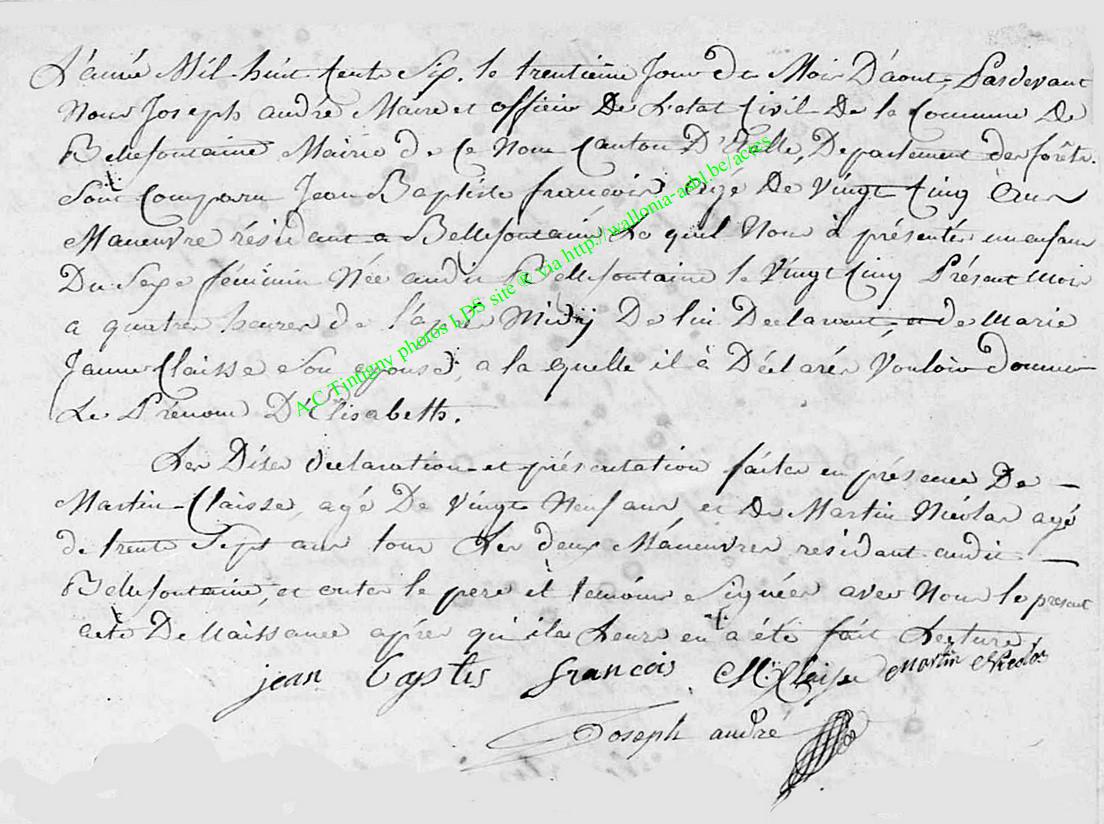 L'année Mil huit Cents Six. le trentième Jour du Mois D'aout, Pardevant
Nous Joseph andré Maire et officier De L'etat Civil De la Commune De
Bellefontaine Mairie de Ce Nom Canton D'Etalle, Departement des forêts.
Sont Comparu Jean Baptiste francois, agé De Vingt Cinq Ans
Maneuvre résidant a Bellefontaine Le quel Nous à présentée un enfant
Du Sexe féminin Née audit Bellefontaine le Vingt Cinq Présent Mois
a quatres heures de l'aprè Midy De lui Declarant, et de Marie
Janne Claisse Son epouse, a la quelle il à Déclarés Vouloir donner
Le Prénom D'Elisabeth.
Les Dites Declaration et présentation faites en présence De
Martin Claisse, agé De Vingt Neuf ans et De Martin Nicolas agé
de trente Sept ans tous Les deux Maneuvres residant audit
Bellefontaine, et ont le pere et temoins Signées avec Nous le present
acte De Naissance aprés qu'il Leurs en a été fait Lecture
jean baptis francois M. Claisse Martin Nicolas
Joseph andré
A.C Tintigny photos LDS site © via http://wallonia-asbl.be/actes